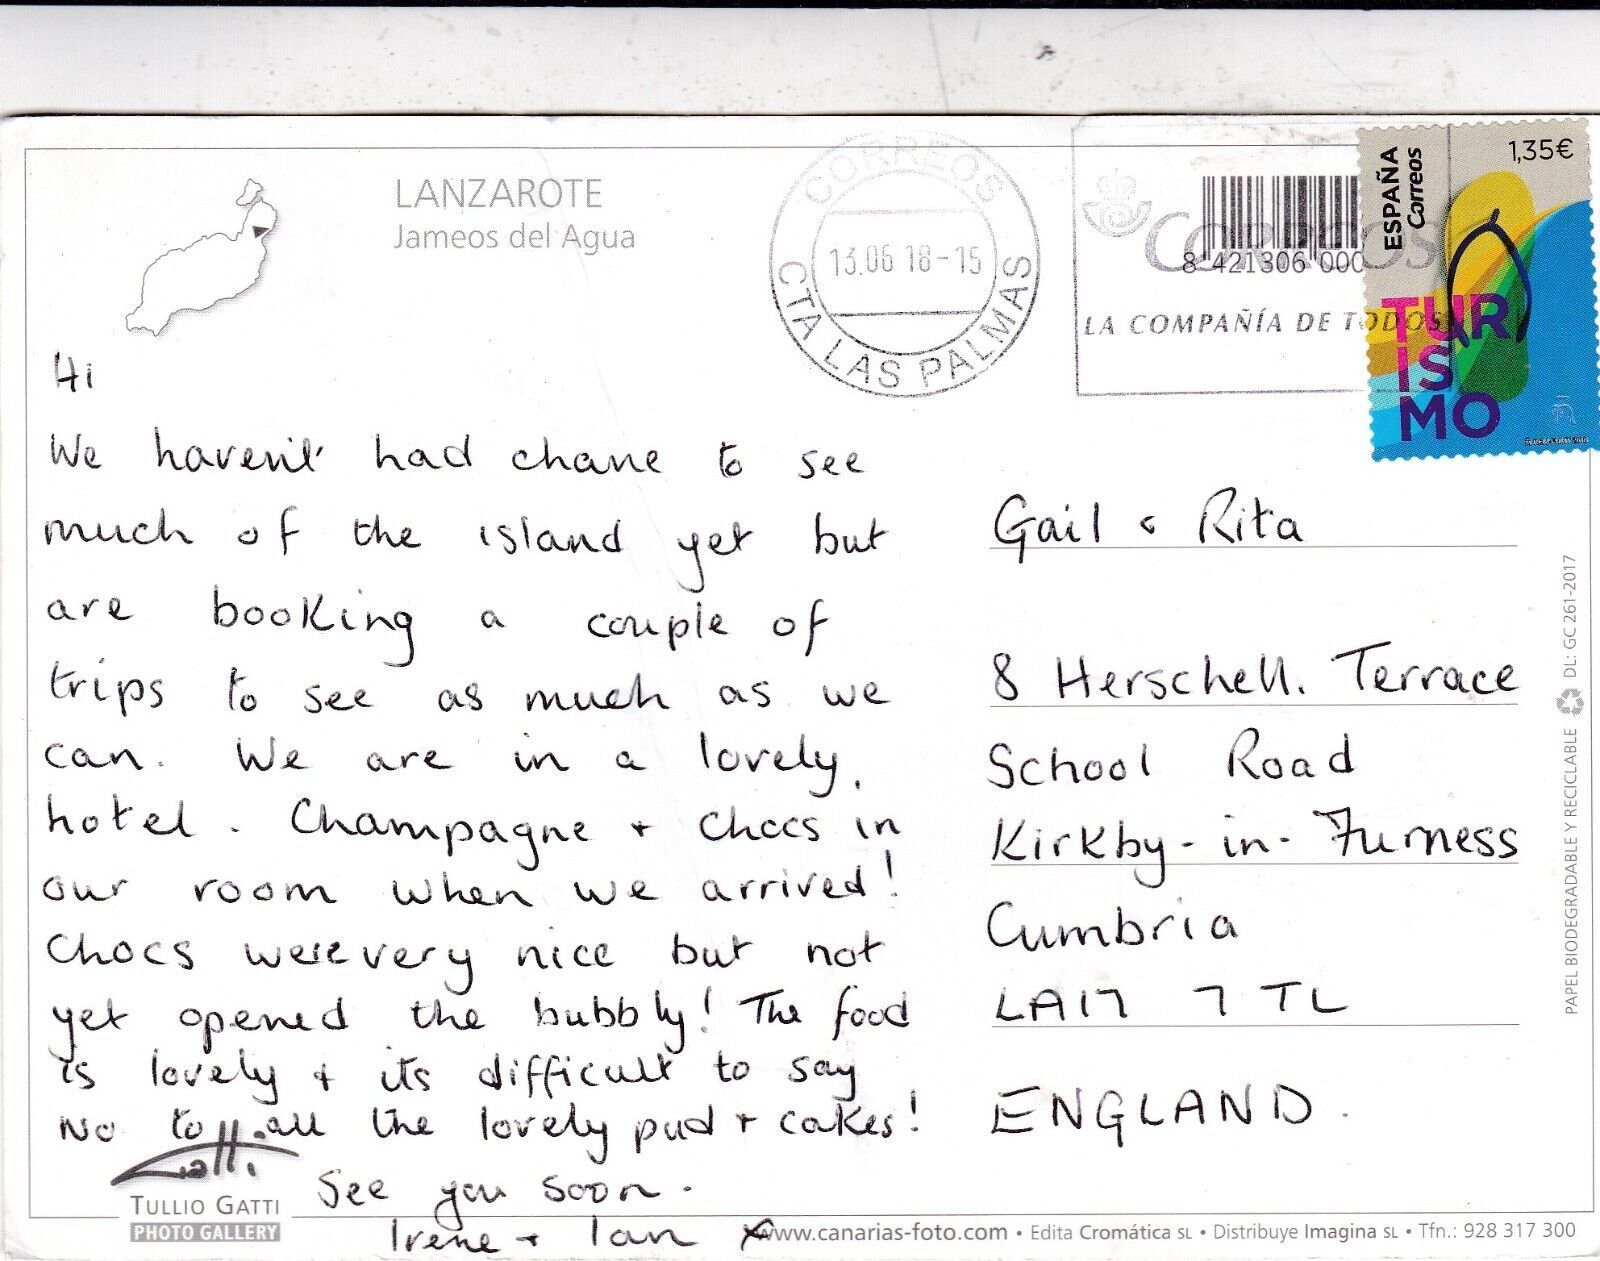 LANZAROTE
Jameos del Agua
CORREOS
13.06 18-15
CTA LAS PALMAS
CORREOS
8 421306 000
LA COMPAÑÍA DE TODOS
ESPAÑA
Correos
1,35€
TUR
IS
MO
Hi
We haven't had chane to see
much of the island yet but
are booking a couple of
trips to see as much as we
can. We are in a lovely
hotel. Champagne + Chocs in
our room when we arrived!
Chocs were very nice but not
yet opened the bubbly! The food
is lovely + its difficult to say
No to all the lovely pud + cakes!
See you soon.
Irene + Ian x
Gail & Rita
8 Herschell. Terrace
School Road
Kirkby-in-Furness
Cumbria
LA17 7TL
ENGLAND.
PAPEL BIODEGRADABLE Y RECICLABLE DL: GC 261-2017
Gatti
TULLIO GATTI
PHOTO GALLERY
www.canarias-foto.com • Edita Cromática SL • Distribuye Imagina SL • Tfn.: 928 317 300